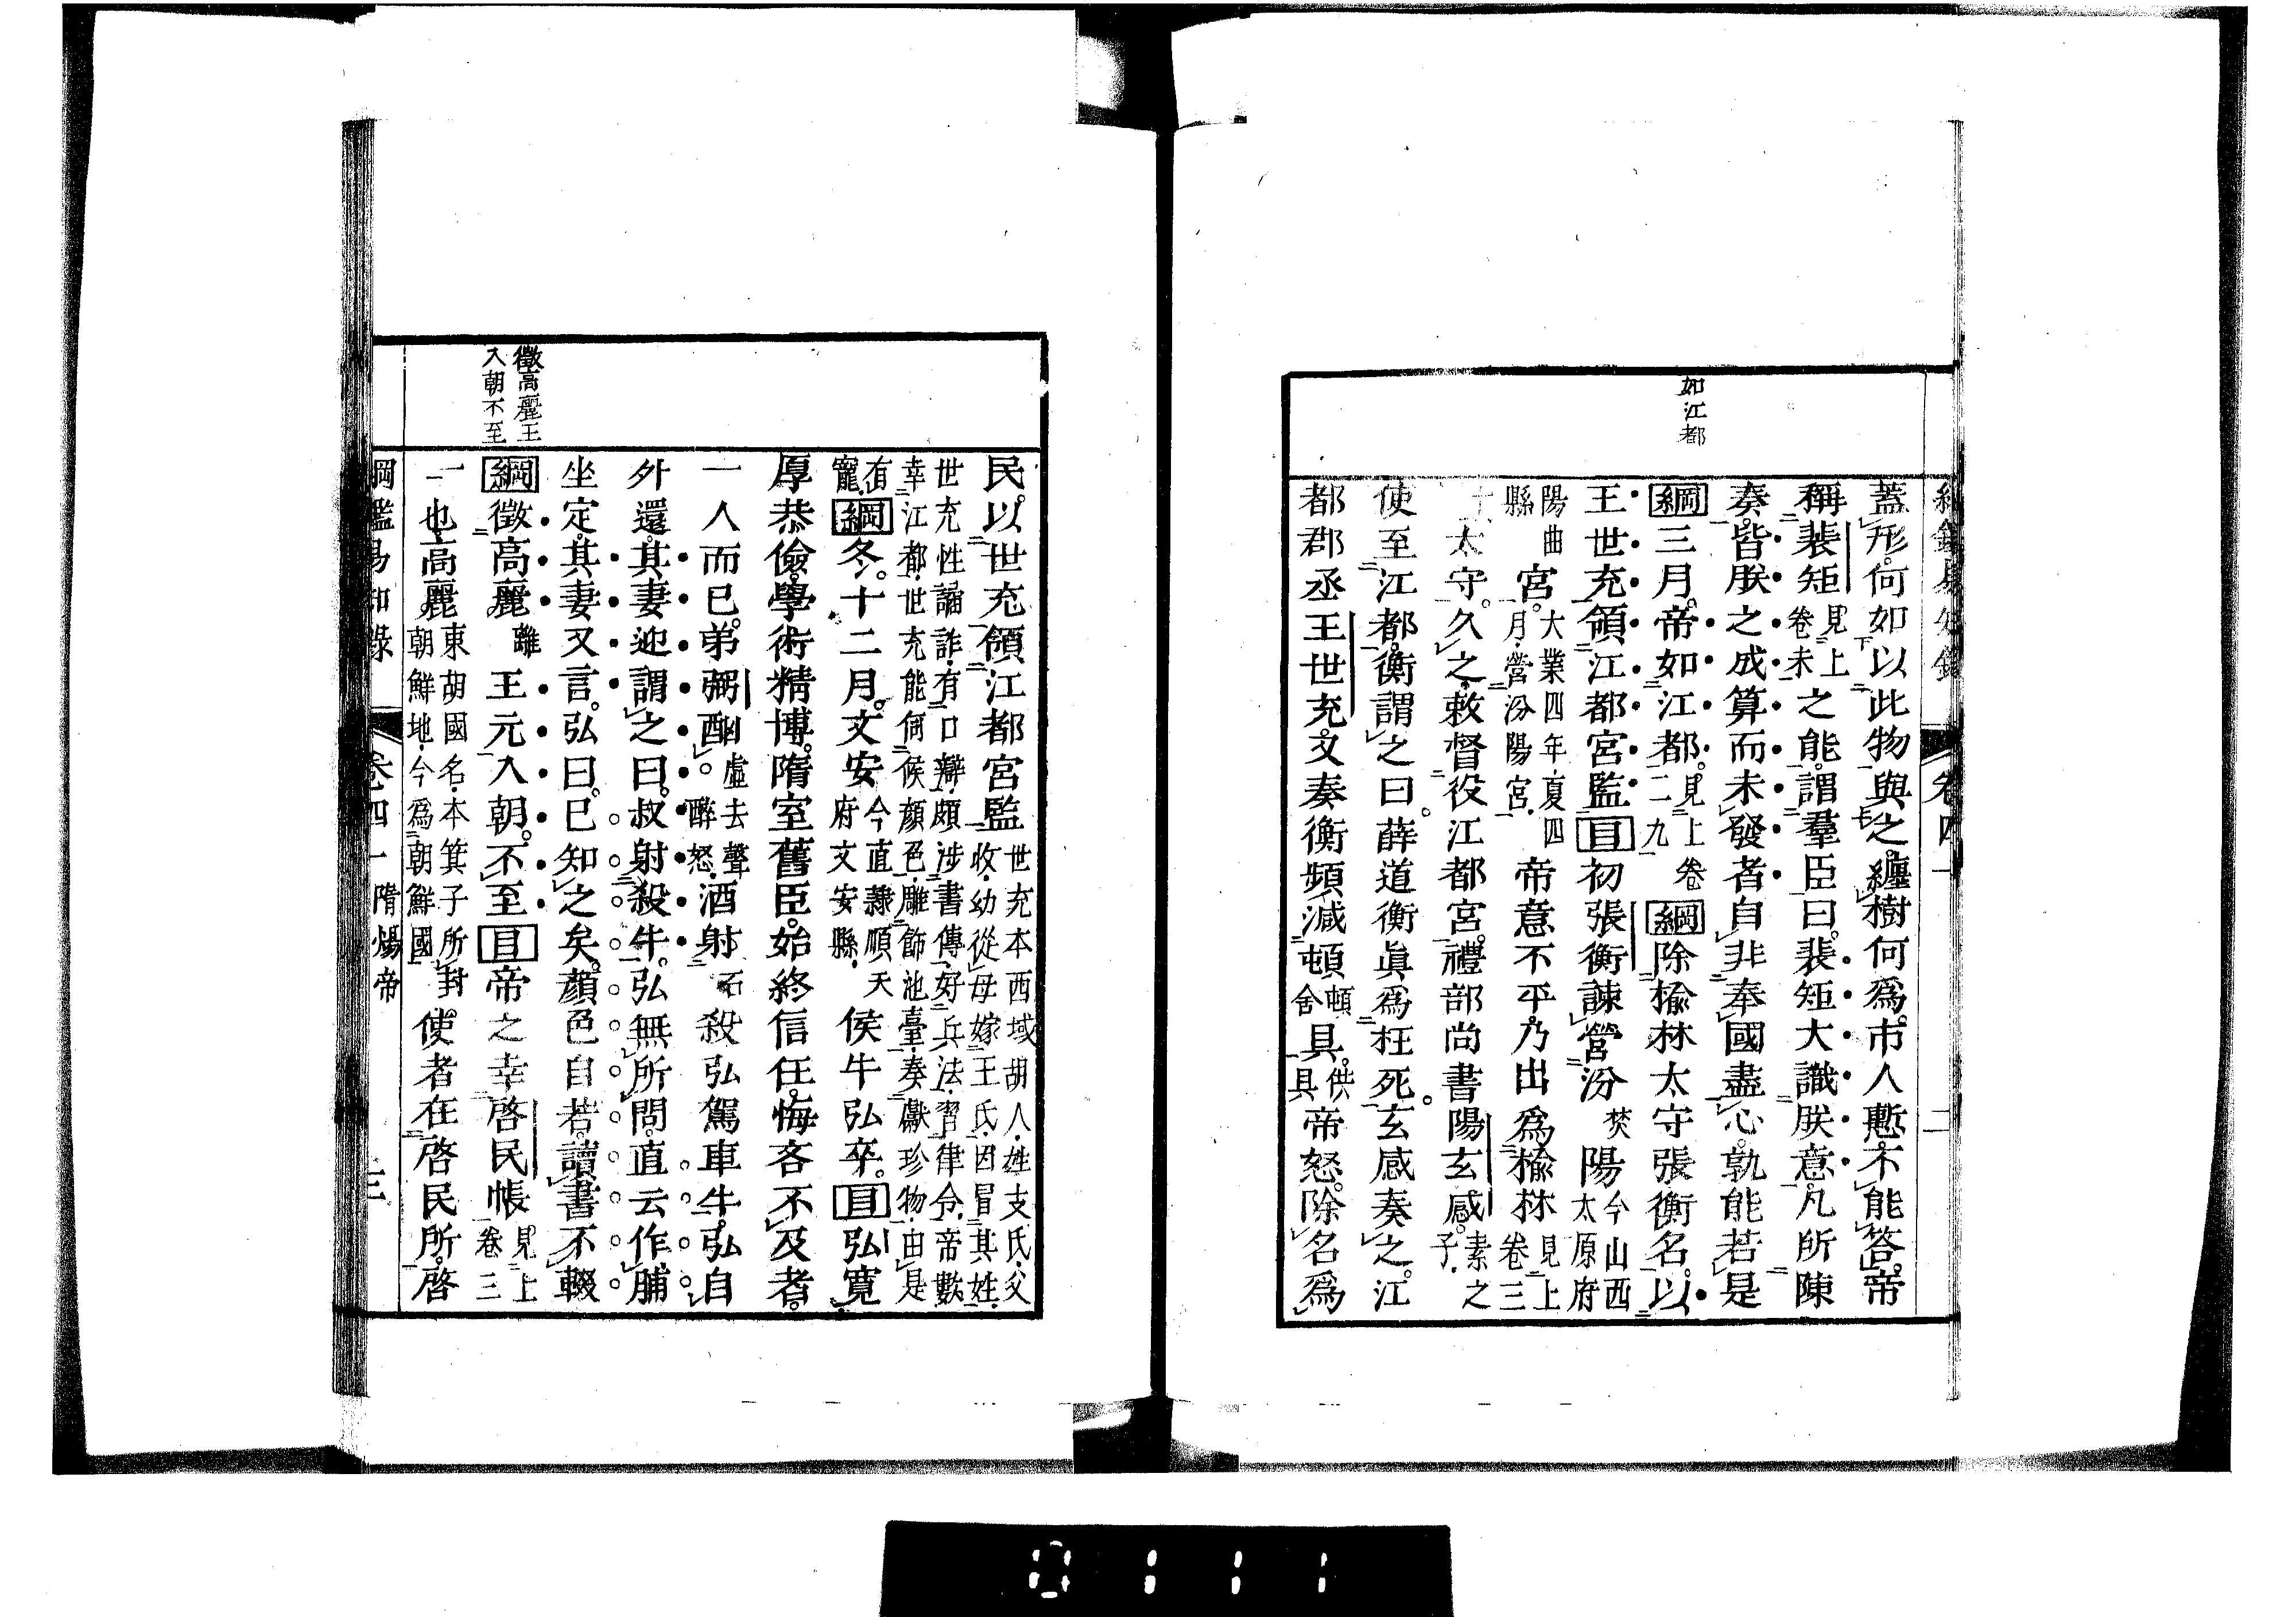 綱鑑易知錄 卷四一 二
如江都
蓋形。何如以此物與之。纏樹何爲。市人慙不能答。帝
稱裴矩見上卷末之能。謂羣臣曰。裴矩大識朕意。凡所陳
奏。皆朕之成算而未發者。自非奉國盡心。孰能若是
綱三月。帝如江都。見上卷二九綱除榆林太守張衡名。以
王世充領江都宮監目初張衡諫營汾焚陽今山西太原府
陽曲縣宮。大業四年夏四月營汾陽宮帝意不平。乃出爲榆林見上卷三
太守。久之。敕督役江都宮。禮部尚書陽玄感。素之子
使至江都。衡謂之曰。薛道衡眞爲枉死。玄感奏之。江
都郡丞王世充。又奏衡頻減頓頓舍具。供具帝怒。除名爲
民。以世充領江都宮監世充本西域胡人姓支氏父
收幼從母嫁王氏因冒其姓
世充性譎詐有口辯頗涉書傳好兵法習律令帝數
幸江都世充能伺候顏色雕飾池臺奏獻珍物由是
有寵綱冬。十二月。文安今直隸順天府文安縣侯牛弘卒。目弘寬
厚恭儉。學術精博。隋室舊臣。始終信任。悔吝不及者。
一人而已。弟弼酗虛去聲醉怒酒射石殺弘駕車牛。弘自
外還。其妻迎謂之曰。叔射殺牛。弘無所問。直云作脯
坐定。其妻又言。弘曰。已知之矣。顏色自若。讀書不輟
徵高麗王
入朝不至
綱徵高麗離王元入朝。不至目帝之幸啓民帳見上卷三
一也高麗東胡國名本箕子所封朝鮮地今爲朝鮮國使者在啓民所。啓
綱鑑易知錄 卷四一 隋煬帝 三
0111